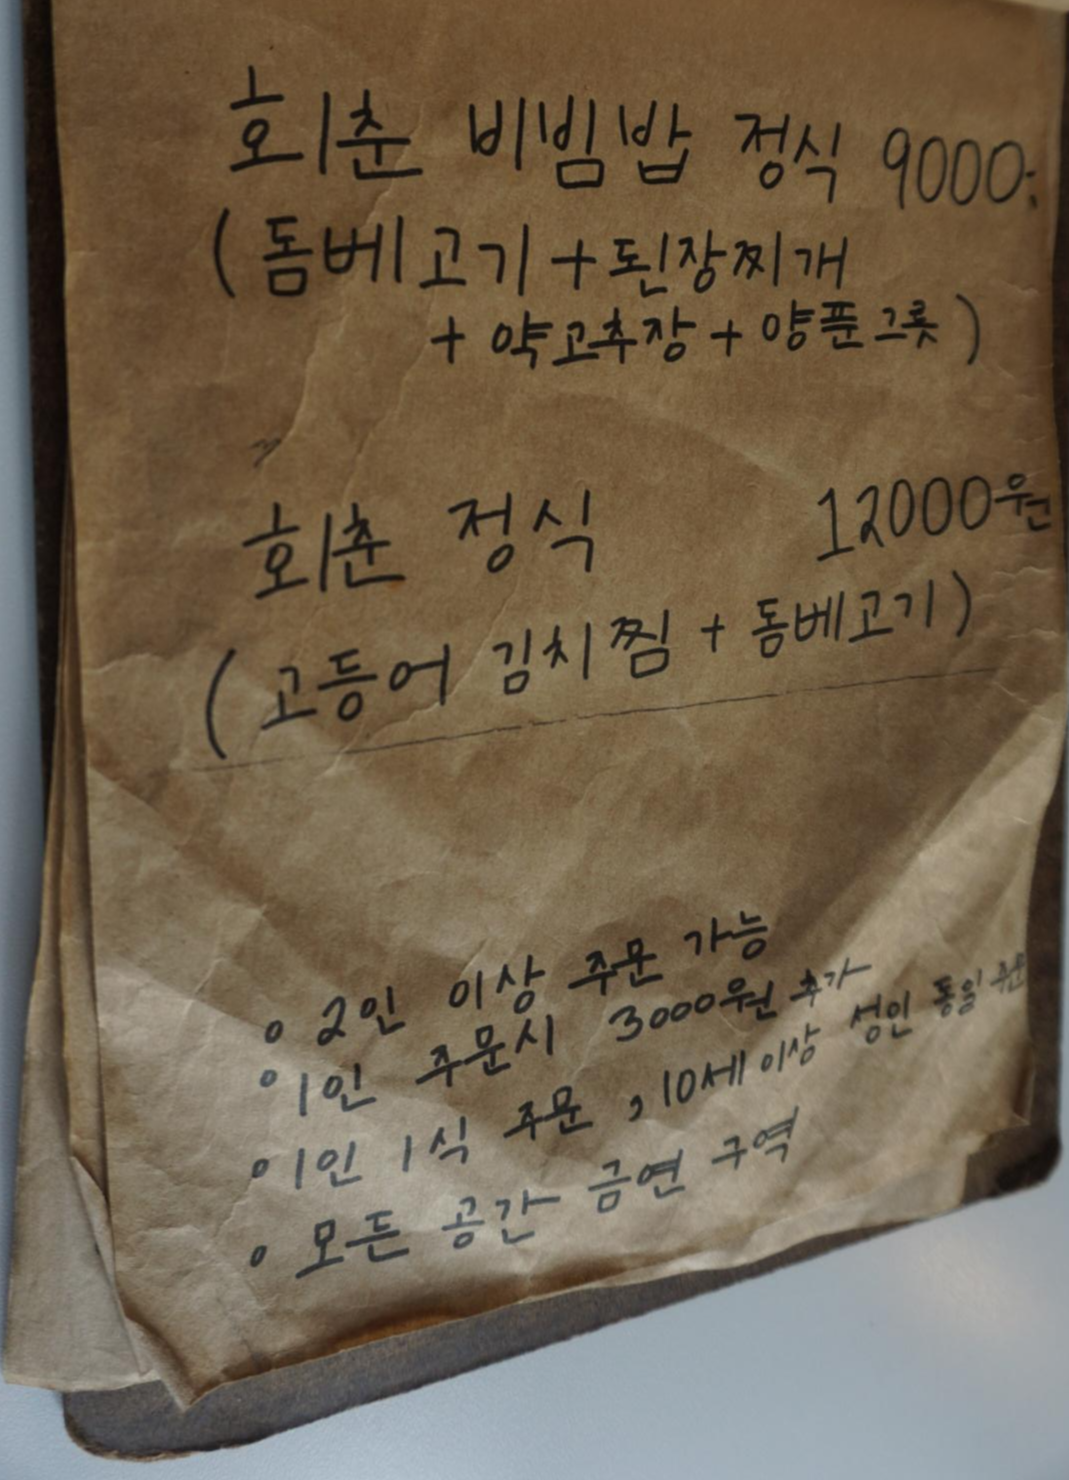 회춘 비빔밥 정식 9000
(돔베고기+된장찌개
+약고추장+양푼그릇)
회춘 정식 12000원
(고등어 김치찜+돔베고기)
◦ 2인 이상 주문 가능
◦ 1인 주문시 3000원 추가
◦ 1인 1식 주문, 10세 이상 성인 동일 주문
◦ 모든 공간 금연 구역